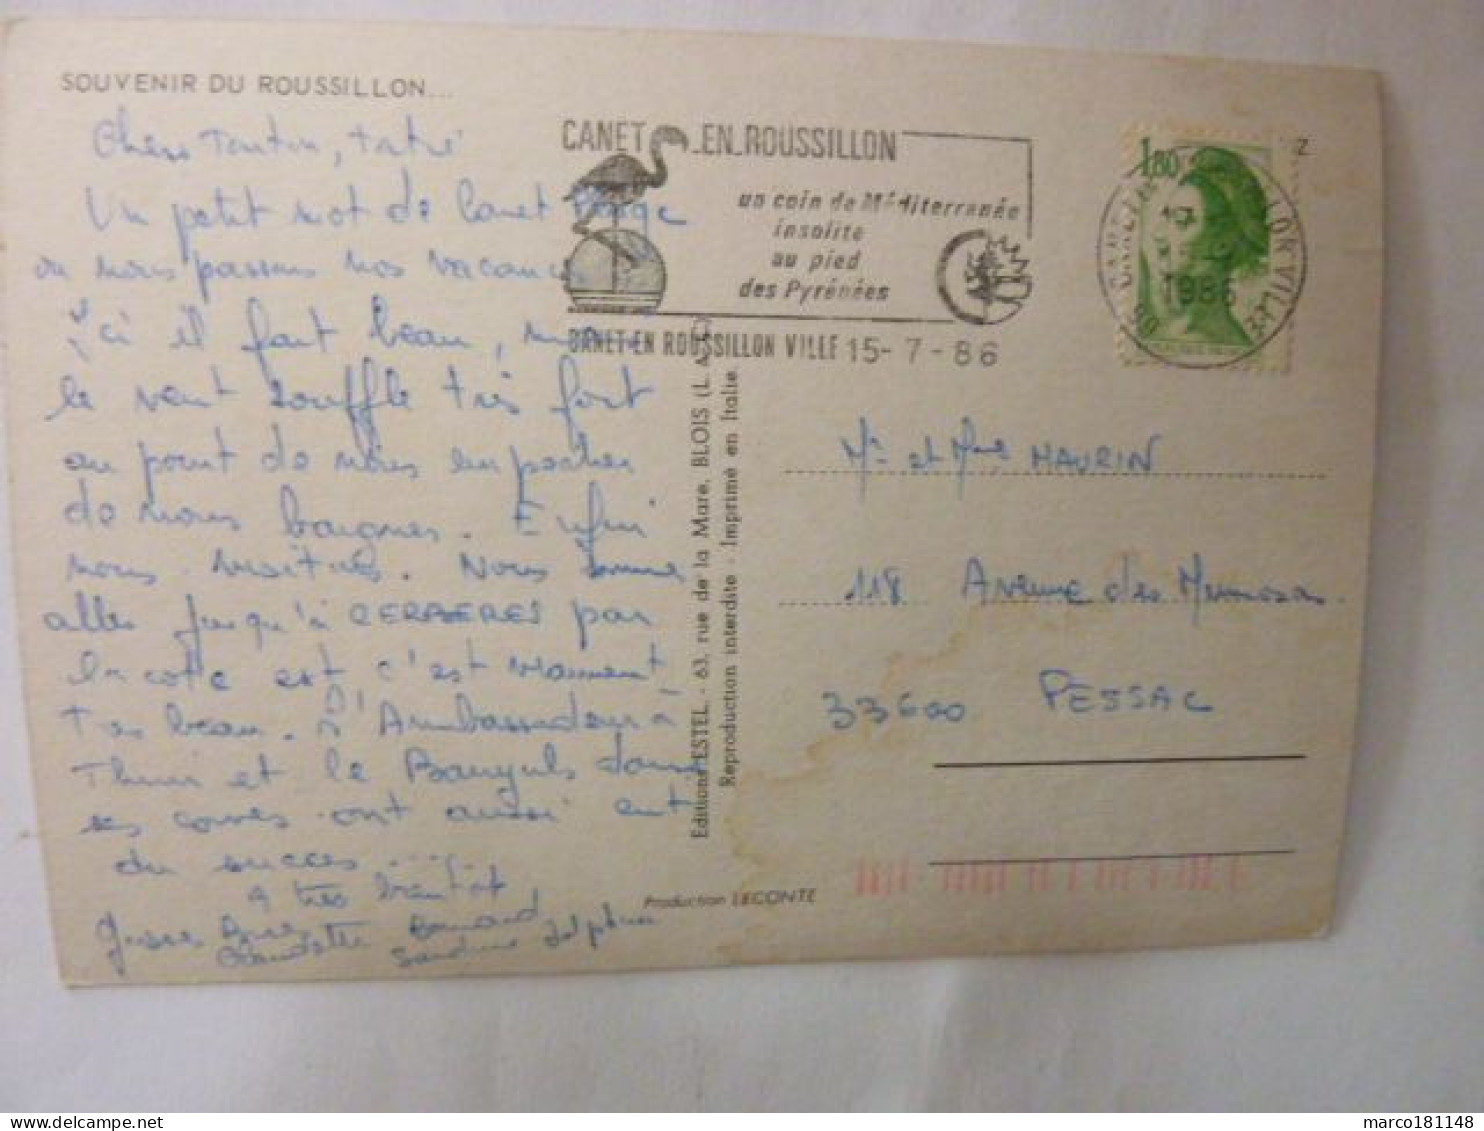 SOUVENIR DU ROUSSILLON...
Chers Tonton, Tatie
Un petit mot de Canet Plage
ou nous passons nos vacances
Ici il fait beau, mais
le vent souffle très fort
au point de nous empecher
de nous baigner. Enfin
nous
Nous sommes
allés jusqu'à CERBERES par
la cote est c'est vraiment
Tres beau. L'Ambassadeur à
Thuir et le Banyuls dans
ses caves ont aussi eut
du succes ......
A très bientot,
Bernard
Claudette
Sandrine Delphine
CANET EN ROUSSILLON
un coin de Méditerranée
insolite
au pied
des Pyrénées
CANET EN ROUSSILLON VILLE 15-7-86
1,80
1986
Z
Mr et Mme MAURIN
118 Avenue des Mimosas
33600 PESSAC
Editions ESTEL - 63, rue de la Mare, BLOIS
Reproduction interdite - Imprimé en Italie.
Production LECONTE
marco181148